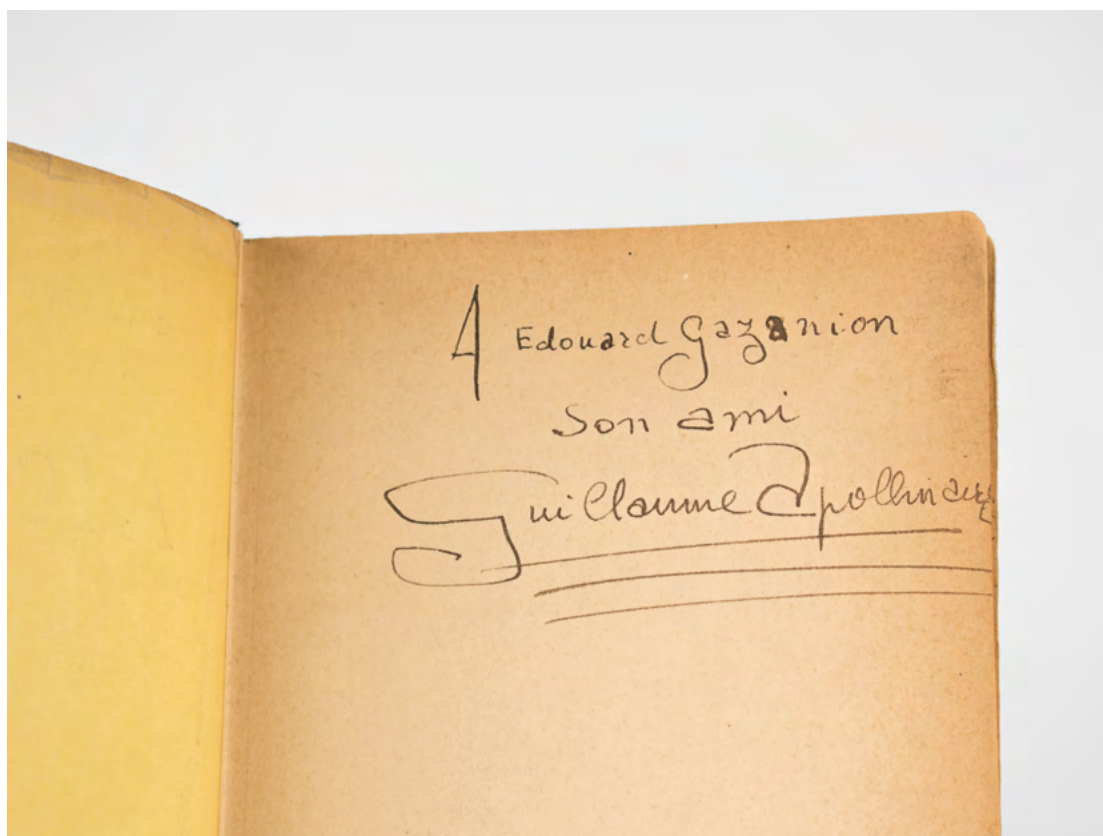 A Edouard Gazanion
son ami
Guillaume Apollinaire